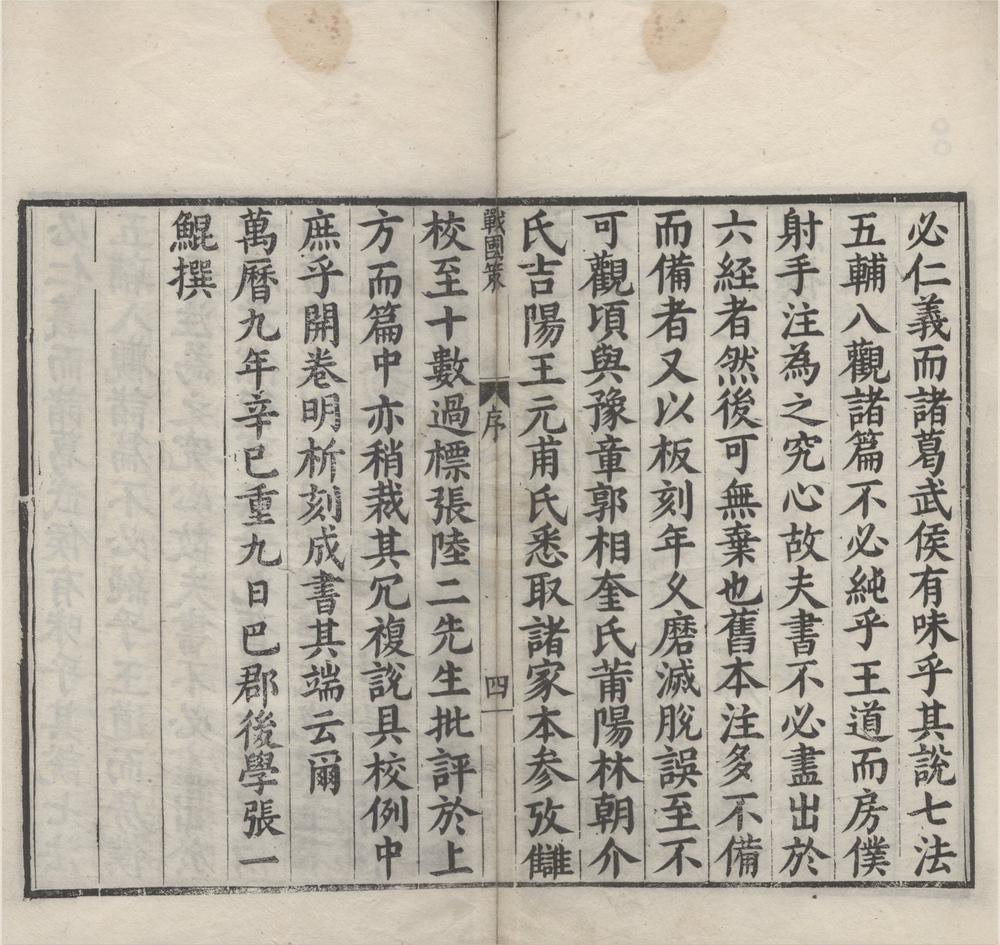 必仁義而諸葛武侯有味乎其說七法
五輔八觀諸篇不必純乎王道而房僕
射手注為之究心故夫書不必盡出於
六経者然後可無棄也舊本注多不備
而備者又以板刻年乆磨滅脫誤至不
可觀頃與豫章郭相奎氏莆陽林朝介
氏吉陽王元甫氏悉取諸家本參攷讎
戰國策 序 四
校至十數過標張陸二先生批評於上
方而篇中亦稍裁其冗複說具校例中
庶乎開卷明析刻成書其端云爾
萬曆九年辛巳重九日巴郡後學張一
鯤撰